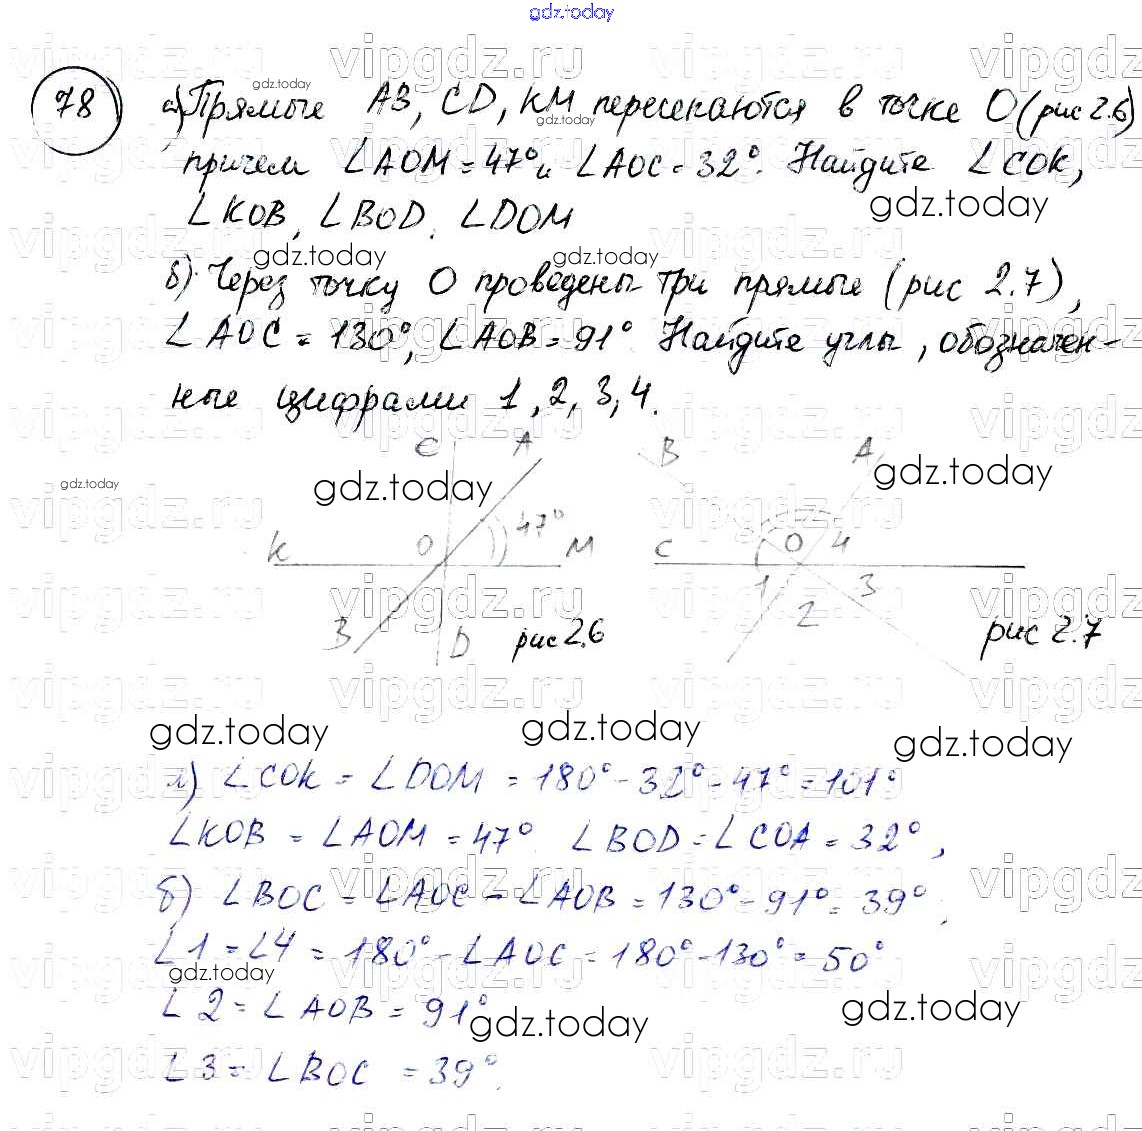 gdz.today
78 а) Прямые AB, CD, KM пересекаются в точке O (рис 2.6)
причем ∠AOM = 47° и ∠AOC = 32°. Найдите ∠COK,
∠KOB, ∠BOD, ∠DOM
б) Через точку O проведены три прямые (рис 2.7),
∠AOC = 130°, ∠AOB = 91° Найдите углы, обозначен-
ные цифрами 1, 2, 3, 4.
C A B A
47°
K O M C O 4
1 2 3
B D рис 2.6 рис 2.7
а) ∠COK = ∠DOM = 180° - 32° - 47° = 101°
∠KOB = ∠AOM = 47° ∠BOD = ∠COA = 32°,
б) ∠BOC = ∠AOC - ∠AOB = 130° - 91° = 39°,
∠1 = ∠4 = 180° - ∠AOC = 180° - 130° = 50°
∠2 = ∠AOB = 91°
∠3 = ∠BOC = 39°.